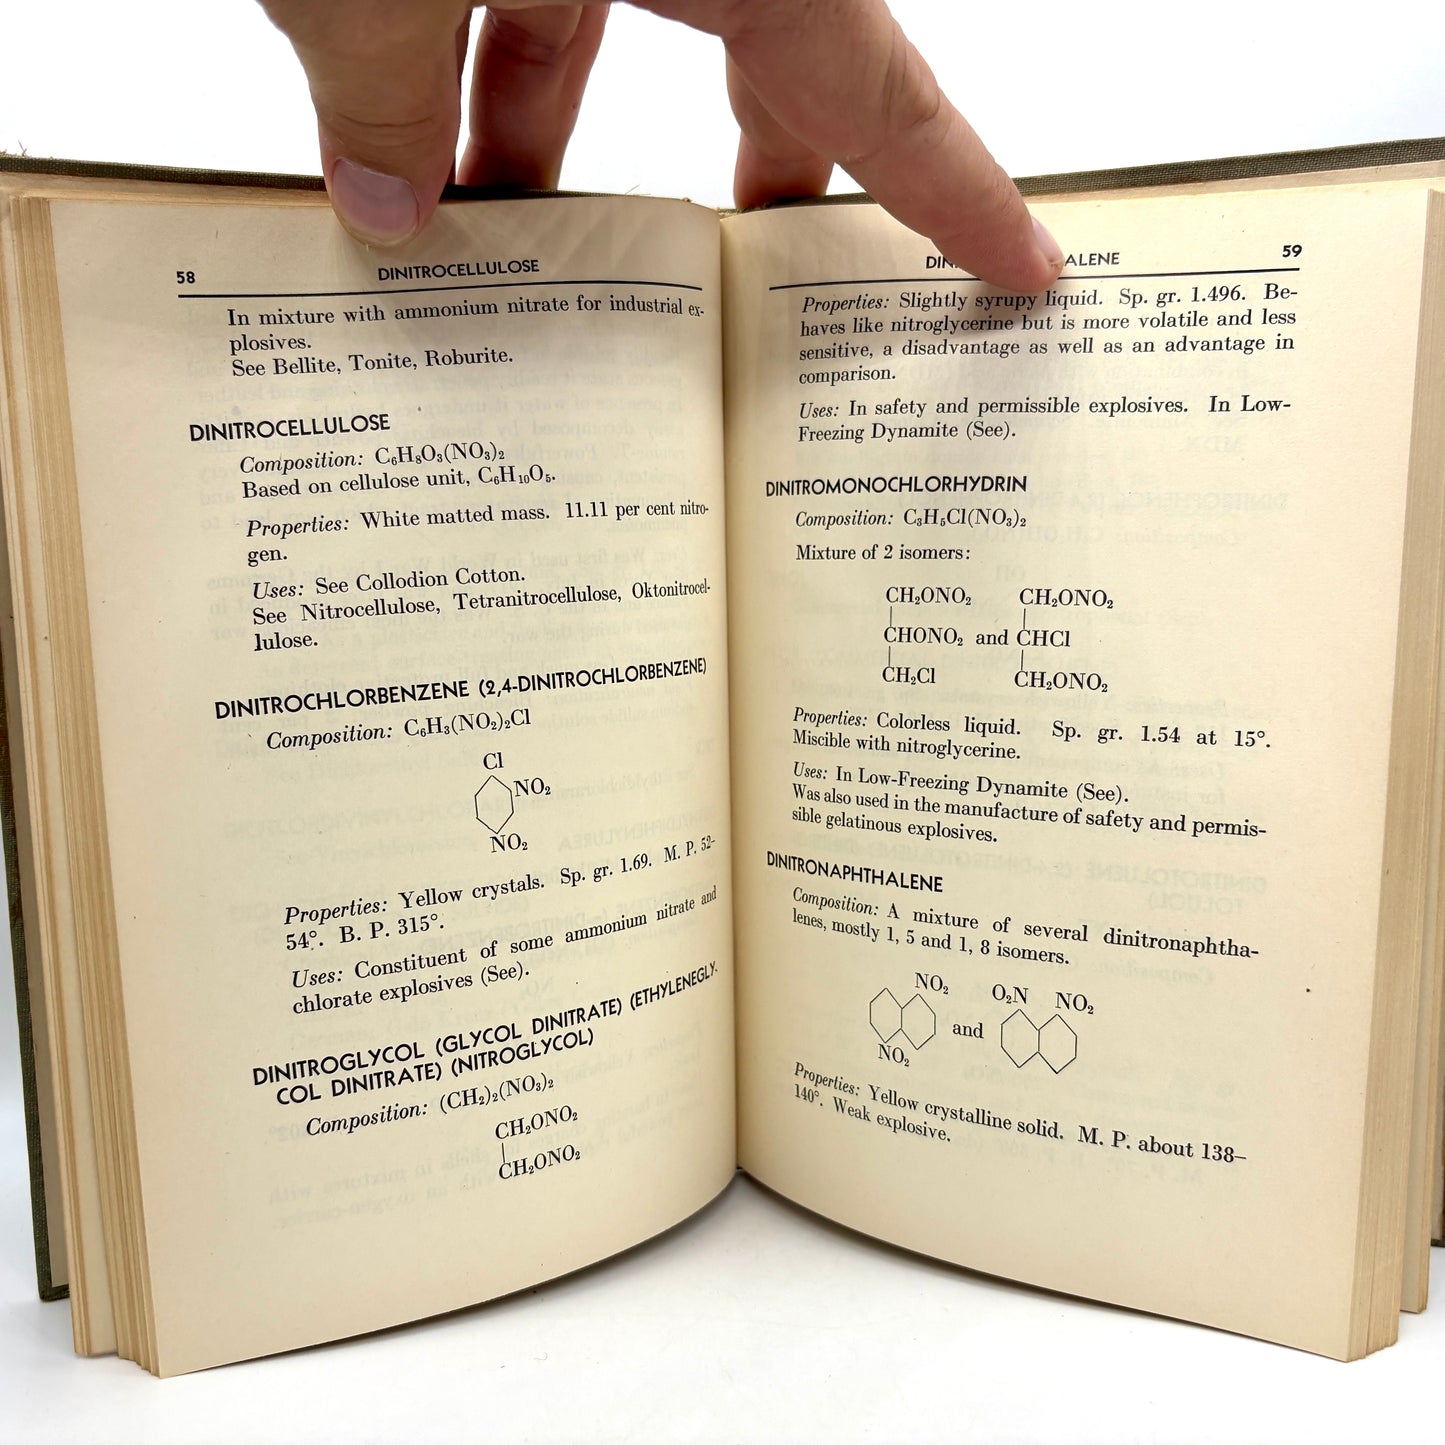 58
DINITROCELLULOSE
In mixture with ammonium nitrate for industrial ex-
plosives.
See Bellite, Tonite, Roburite.
DINITROCELLULOSE
Composition: C₆H₈O₃(NO₃)₂
Based on cellulose unit, C₆H₁₀O₅.
Properties: White matted mass. 11.11 per cent nitro-
gen.
Uses: See Collodion Cotton.
See Nitrocellulose, Tetranitrocellulose, Oktonitrocel-
lulose.
DINITROCHLORBENZENE (2,4-DINITROCHLORBENZENE)
Composition: C₆H₃(NO₂)₂Cl
Cl
NO₂
NO₂
Properties: Yellow crystals. Sp. gr. 1.69. M. P. 52-
54°. B. P. 315°.
Uses: Constituent of some ammonium nitrate and
chlorate explosives (See).
DINITROGLYCOL (GLYCOL DINITRATE) (ETHYLENEGLY-
COL DINITRATE) (NITROGLYCOL)
Composition: (CH₂)₂(NO₃)₂
CH₂ONO₂
CH₂ONO₂
59
ALENE
Properties: Slightly syrupy liquid. Sp. gr. 1.496. Be-
haves like nitroglycerine but is more volatile and less
sensitive, a disadvantage as well as an advantage in
comparison.
Uses: In safety and permissible explosives. In Low-
Freezing Dynamite (See).
DINITROMONOCHLORHYDRIN
Composition: C₃H₅Cl(NO₃)₂
Mixture of 2 isomers:
CH₂ONO₂ CH₂ONO₂
CHONO₂ and CHCl
CH₂Cl CH₂ONO₂
Properties: Colorless liquid. Sp. gr. 1.54 at 15°.
Miscible with nitroglycerine.
Uses: In Low-Freezing Dynamite (See).
Was also used in the manufacture of safety and permis-
sible gelatinous explosives.
DINITRONAPHTHALENE
Composition: A mixture of several dinitronaphtha-
lenes, mostly 1, 5 and 1, 8 isomers.
NO₂ O₂N NO₂
and
NO₂
Properties: Yellow crystalline solid. M. P. about 138–
140°. Weak explosive.